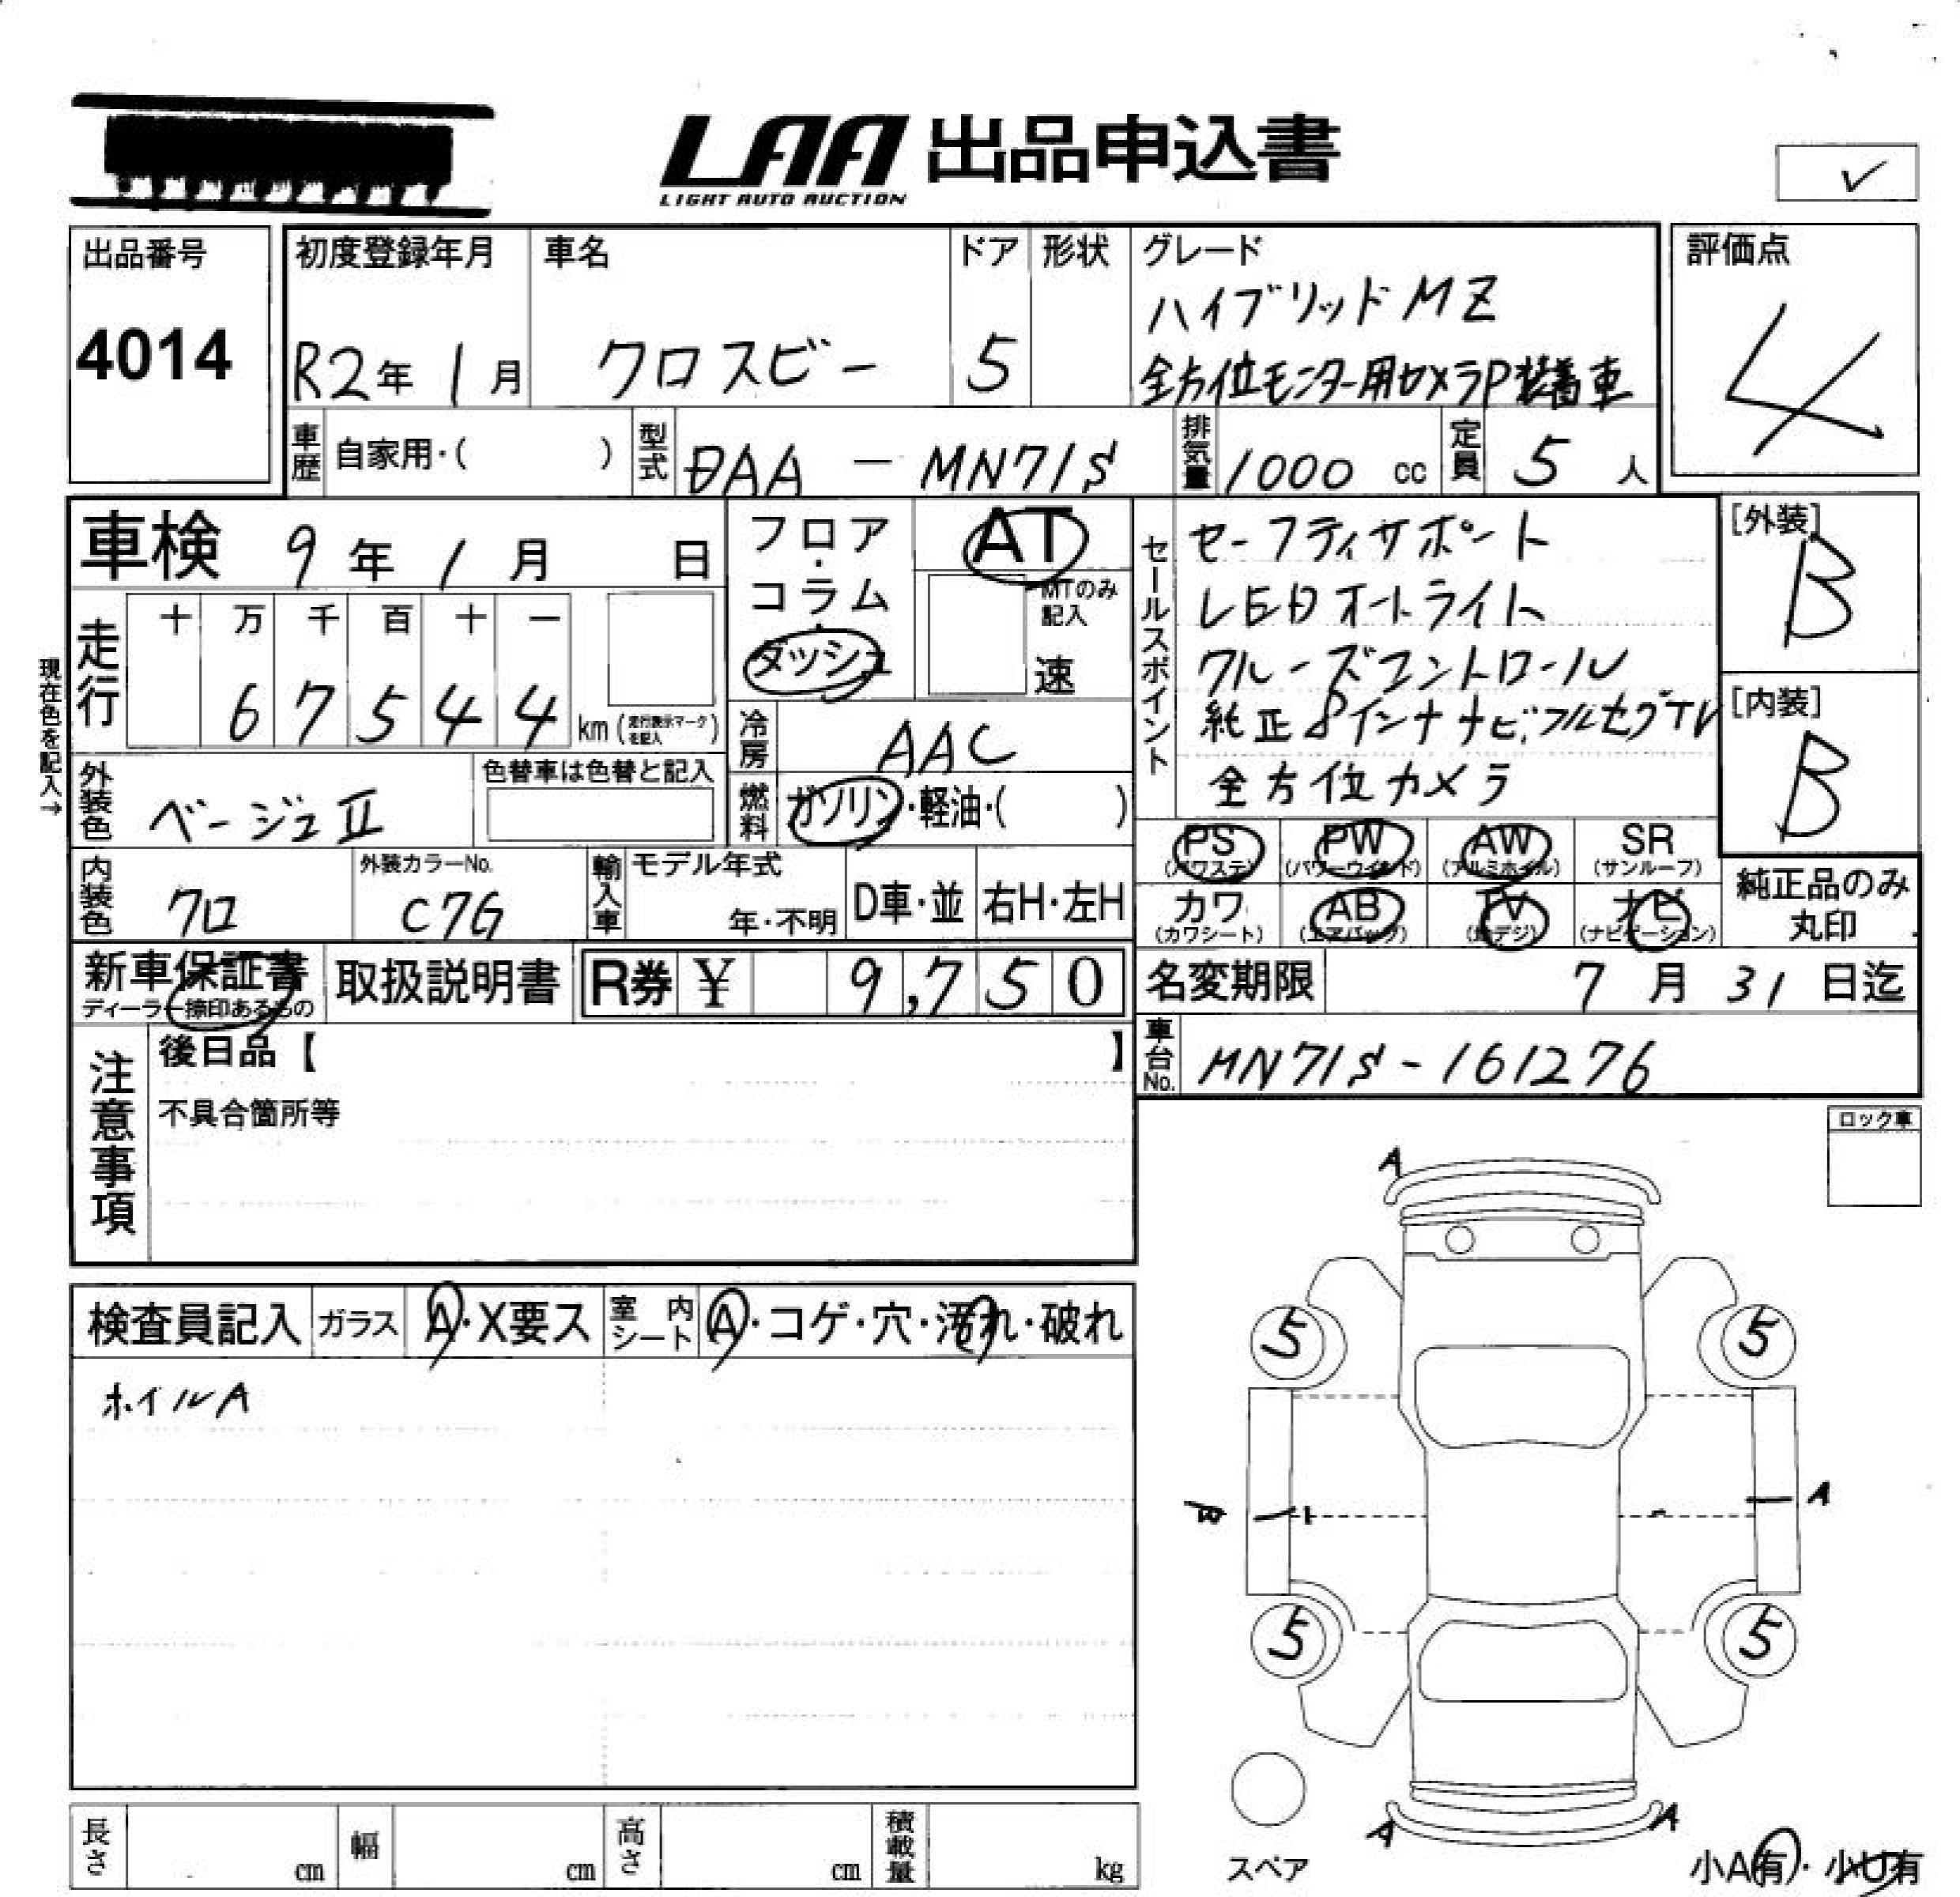 LAA 出品申込書
LIGHT AUTO AUCTION
✓
出品番号
4014
初度登録年月
R2年 1月
車名
クロスビー
ドア
5
形状
グレード
ハイブリッドMZ
全方位モニター用カメラP装着車
評価点
4
車歴 自家用・( )
型式 DAA - MN71S
排気量 1000 cc
定員 5 人
車検 9年 1月 日
フロア・コラム・ダッシュ
AT
MTのみ記入
速
セールスポイント
セーフティサポート
LEDオートライト
クルーズコントロール
純正8インチナビ、フルセグTV
全方位カメラ
[外装]
B
[内装]
B
現在色を記入→
走行 十 万 千 百 十 一
6 7 5 4 4 km (走行表示マークを記入)
冷房 AAC
燃料 ガソリン・軽油・( )
外装色 ベージュⅡ
色替車は色替と記入
内装色 クロ
外装カラーNo.
C7G
輸入車 モデル年式
年・不明
D車・並
右H・左H
PS (パワステ)
PW (パワーウインド)
AW (アルミホイル)
SR (サンルーフ)
カワ (カワシート)
AB (エアバッグ)
TV (地デジ)
ナビ (ナビゲーション)
純正品のみ
丸印
新車保証書
ディーラー捺印あるもの
取扱説明書
R券 ¥ 9,750
名変期限 7月 31日迄
車台No. MN71S-161276
注意事項
後日品【 】
不具合箇所等
ロック車
検査員記入 ガラス A・X要ス 室内シート A・コゲ・穴・汚れ・破れ
ホイルA
A
5 5
A
5 5
A A
スペア
小A有・小U有
長さ cm 幅 cm 高さ cm 積載量 kg